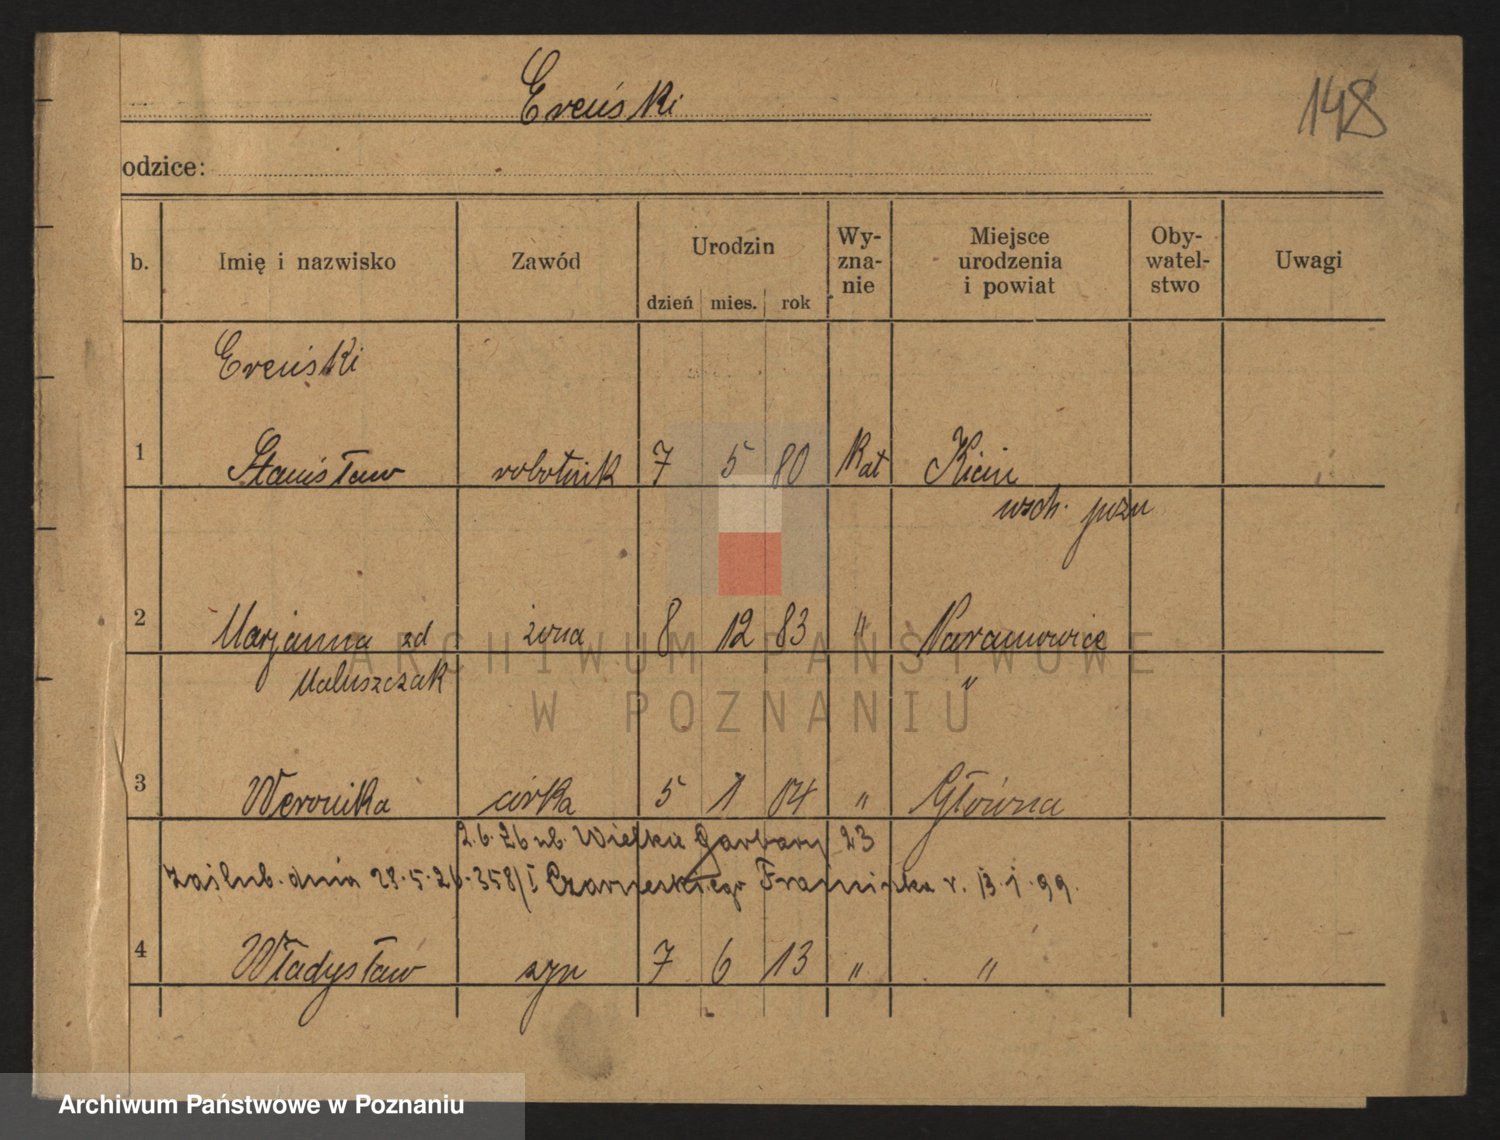 Ereński
148
odzice:
b. Imię i nazwisko Zawód Urodzin dzień mies. rok Wy-zna-nie Miejsce urodzenia i powiat Oby-watel-stwo Uwagi
Ereński
1 Stanisław robotnik 7 5 80 Kat Kicin
wsch. pozn
2 Marjanna zd żona 8 12 83 " 
Maluszczak "
3 Weronika córka 5 1 04 " Główna
2.6.26 ub. Wielkie Garbary 23
zaślub. dnia 28.5.26.358/I Czarneckiego Franciszka r. 13.1.99.
4 Władysław syn 7 6 13 " "
ARCHIWUM PAŃSTWOWE
W POZNANIU
Archiwum Państwowe w Poznaniu